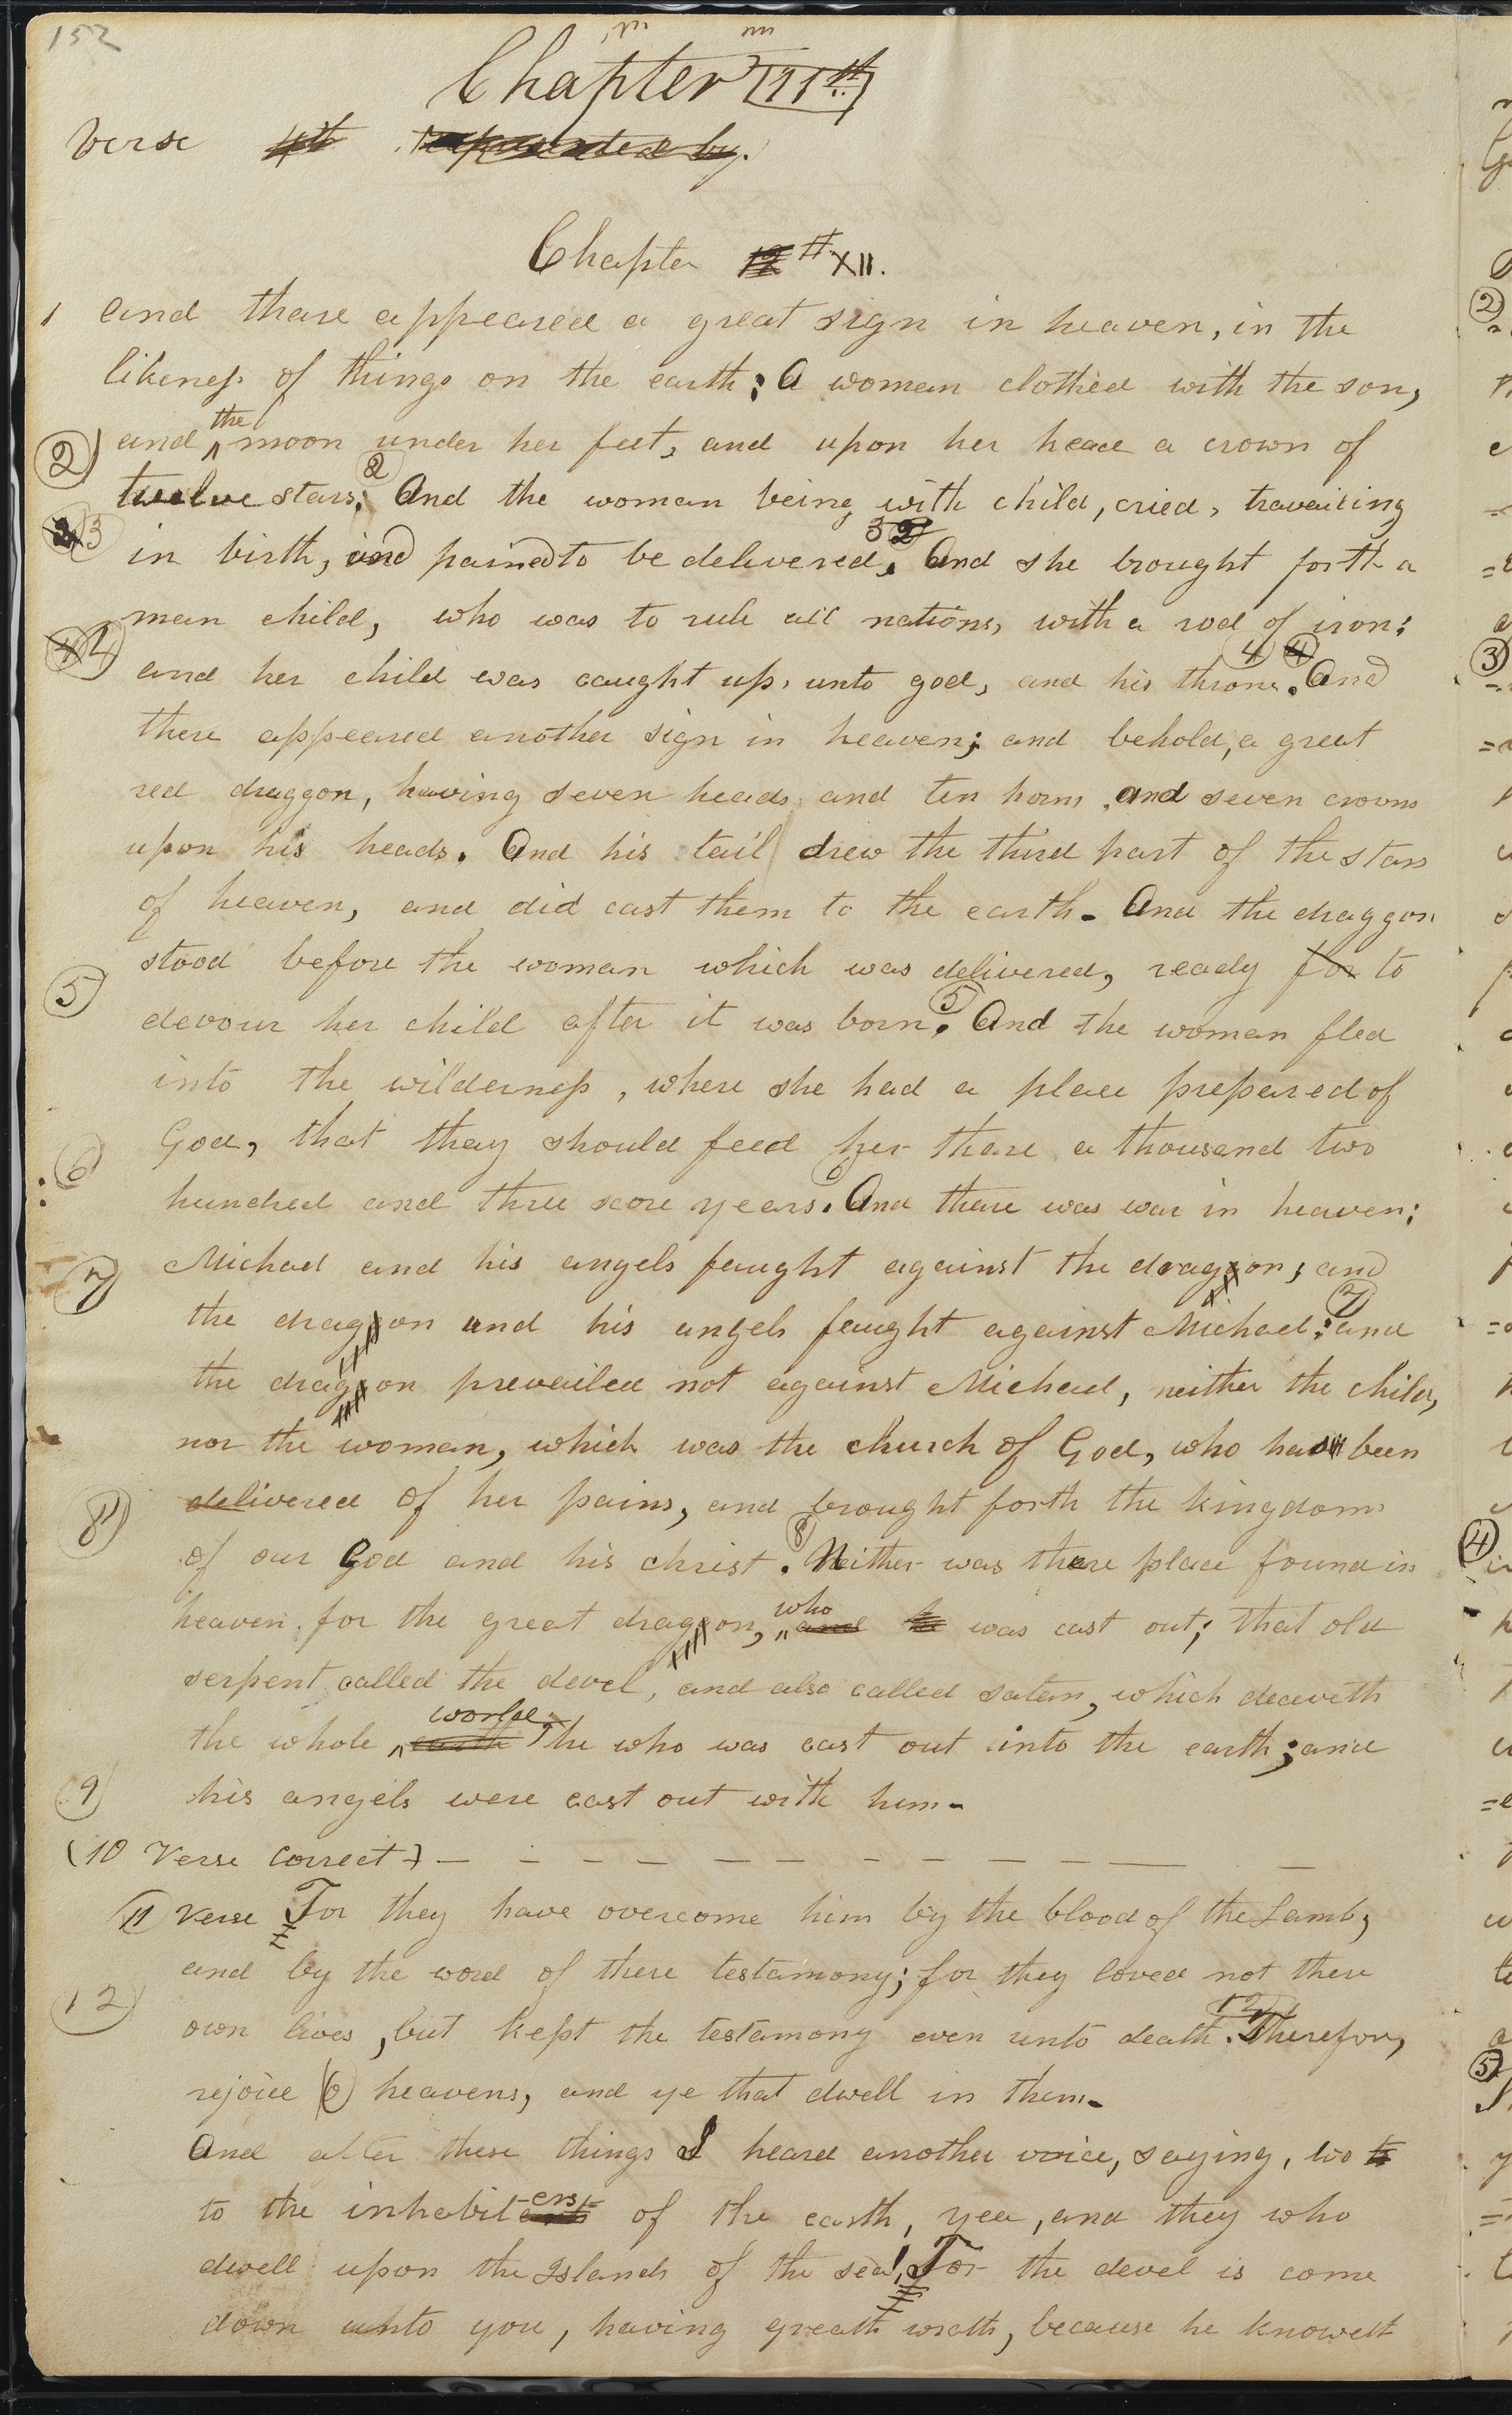 152
Chapter 11th
Verse 4th represented by.
Chapter 12th XII.
1 and thare appeared a great sign in heaven, in the
likeness of things on the earth; A woman clothed with the son,
2) and the moon under her feet, and upon her head a crown of
twelve stars. 2 And the woman being with child, cried, travailing
3 in birth, and pained to be delivered. 3 2 And she brought forth a
man child, who was to rule all nations, with a rod of iron:
4 and her child was caught up, unto god, and his throne. 4 4 And
there appeared another sign in heaven; and behold, a great
red draggon, having seven heads and ten horns, and seven crowns
upon his heads. And his tail drew the third part of the stars
of heaven, and did cast them to the earth. And the draggon
stood before the woman which was delivered, ready for to
5 devour her child after it was born. 5 And the woman fled
into the wilderness, where she had a place prepared of
God, that thay should feed her thare a thousand two
6 hundred and three score years. 6 And thare was war in heaven;
Michael and his angels faught against the draggon; and
7 the draggon and his angels faught against Michael; 7 and
the draggon prevailed not against Michael, neither the child,
nor the woman, which was the church of God, who had been
8 delivered of her pains, and brought forth the kingdom
of our God and his christ. 8 Neither was thare place found in
heaven for the great draggon, who and he was cast out; that old
serpent called the devel, and also called satan, which deceveth
the whole world, earth he who was cast out into the earth; and
9 his angels were cast out with him.
(10 Verse correct)
11 Verse For they have overcome him by the blood of the Lamb,
and by the word of there testamony; for they loved not there
12 own lives, but kept the testamony even unto death. 12 Therefore,
rejoice O heavens, and ye that dwell in them.
And after these things I heard another voice, saying, wo to
to the inhabiters of the earth, yea, and they who
dwell upon the Islands of the sea! For the devel is come
down unto you, having greath wrath, because he knoweth
2
3
4
5